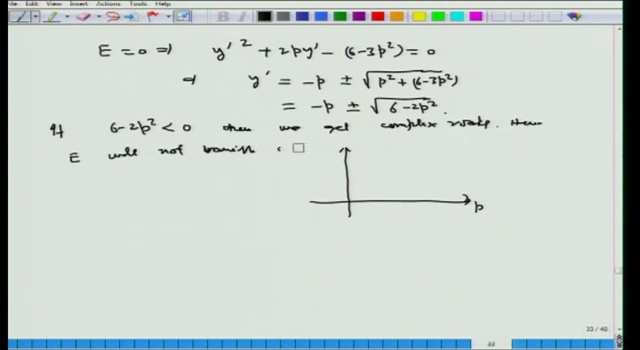 Edit View Insert Actions Tools Help
E = 0 ⇒ y'² + 2py' - (6-3p²) = 0
⇒ y' = -p ± √p² + (6-3p²)
= -p ± √6-2p².
If 6-2p² < 0 then we get complex roots. Then
E will not vanish
p
33 / 40
33